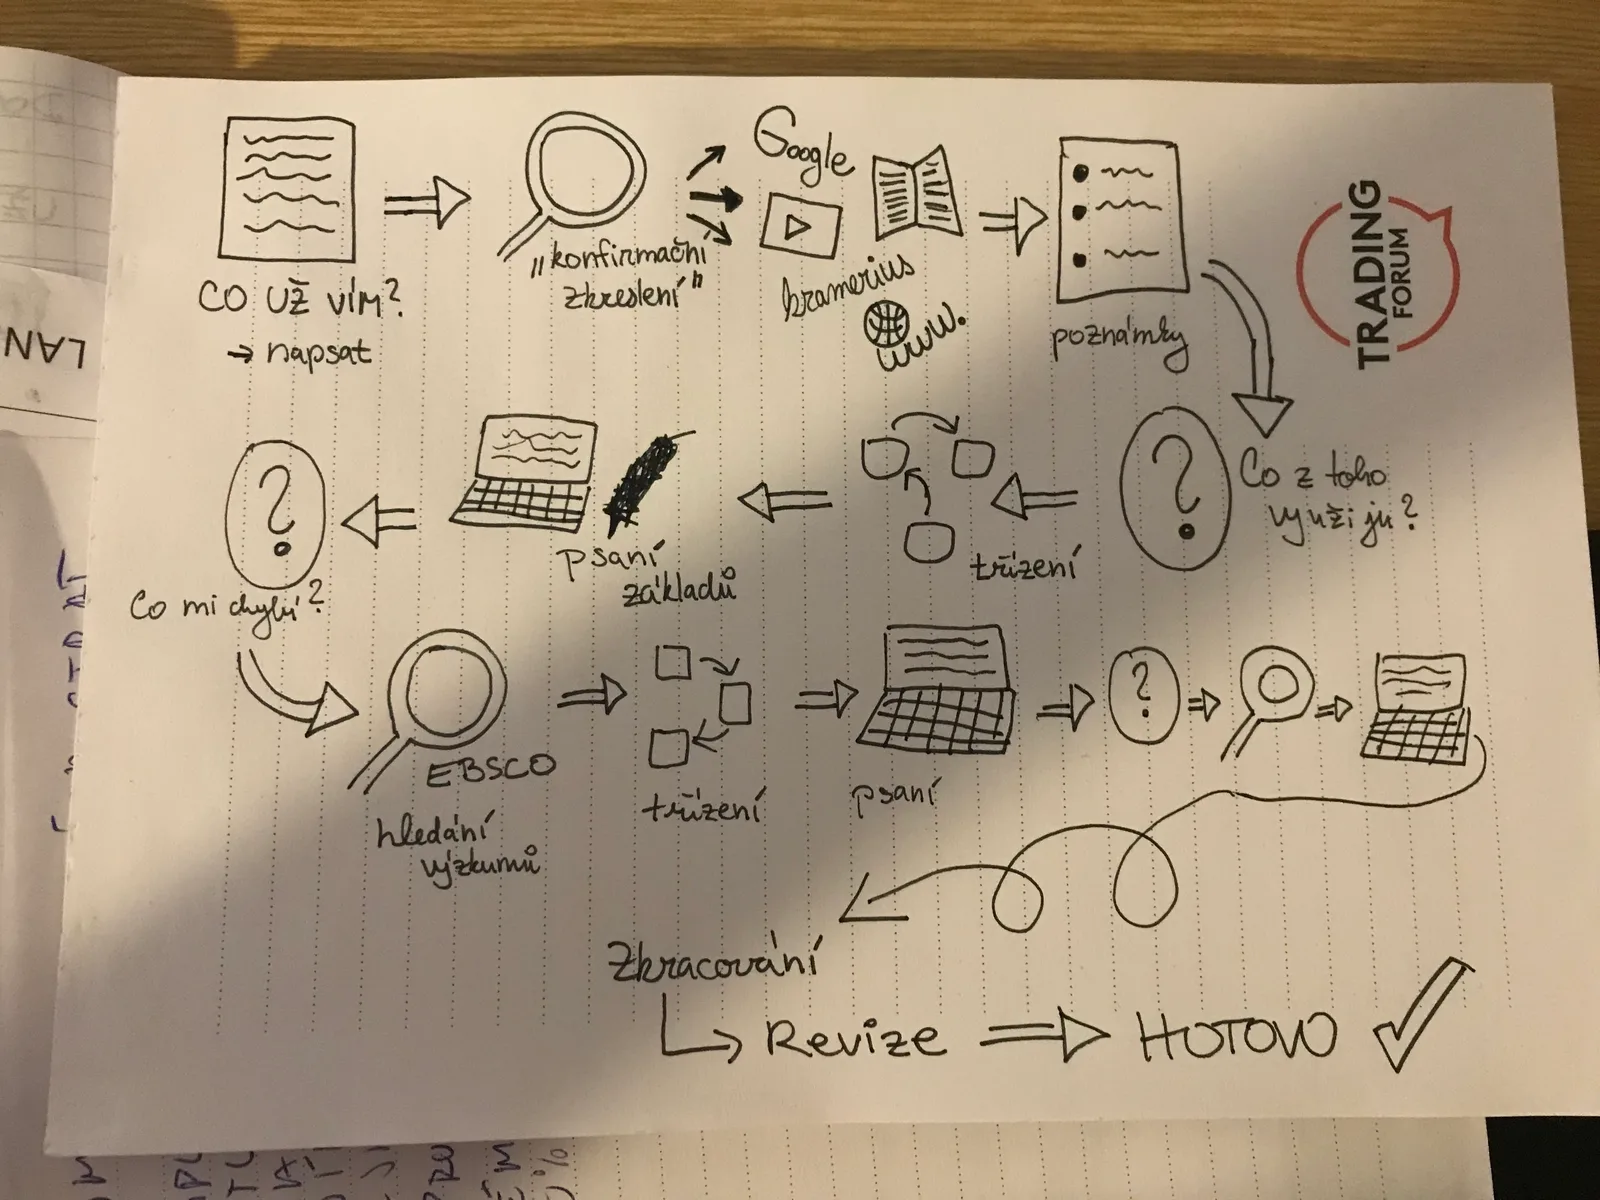 CO UŽ VÍM?
→ napsat
"konfirmační
zkreslení"
Google
kramerius
www.
poznámky
TRADING
FORUM
Co z toho
využiju?
třízení
psaní
základů
Co mi chybí?
EBSCO
hledání
výzkumů
třízení
psaní
Zkracování
Revize
HOTOVO
LAN